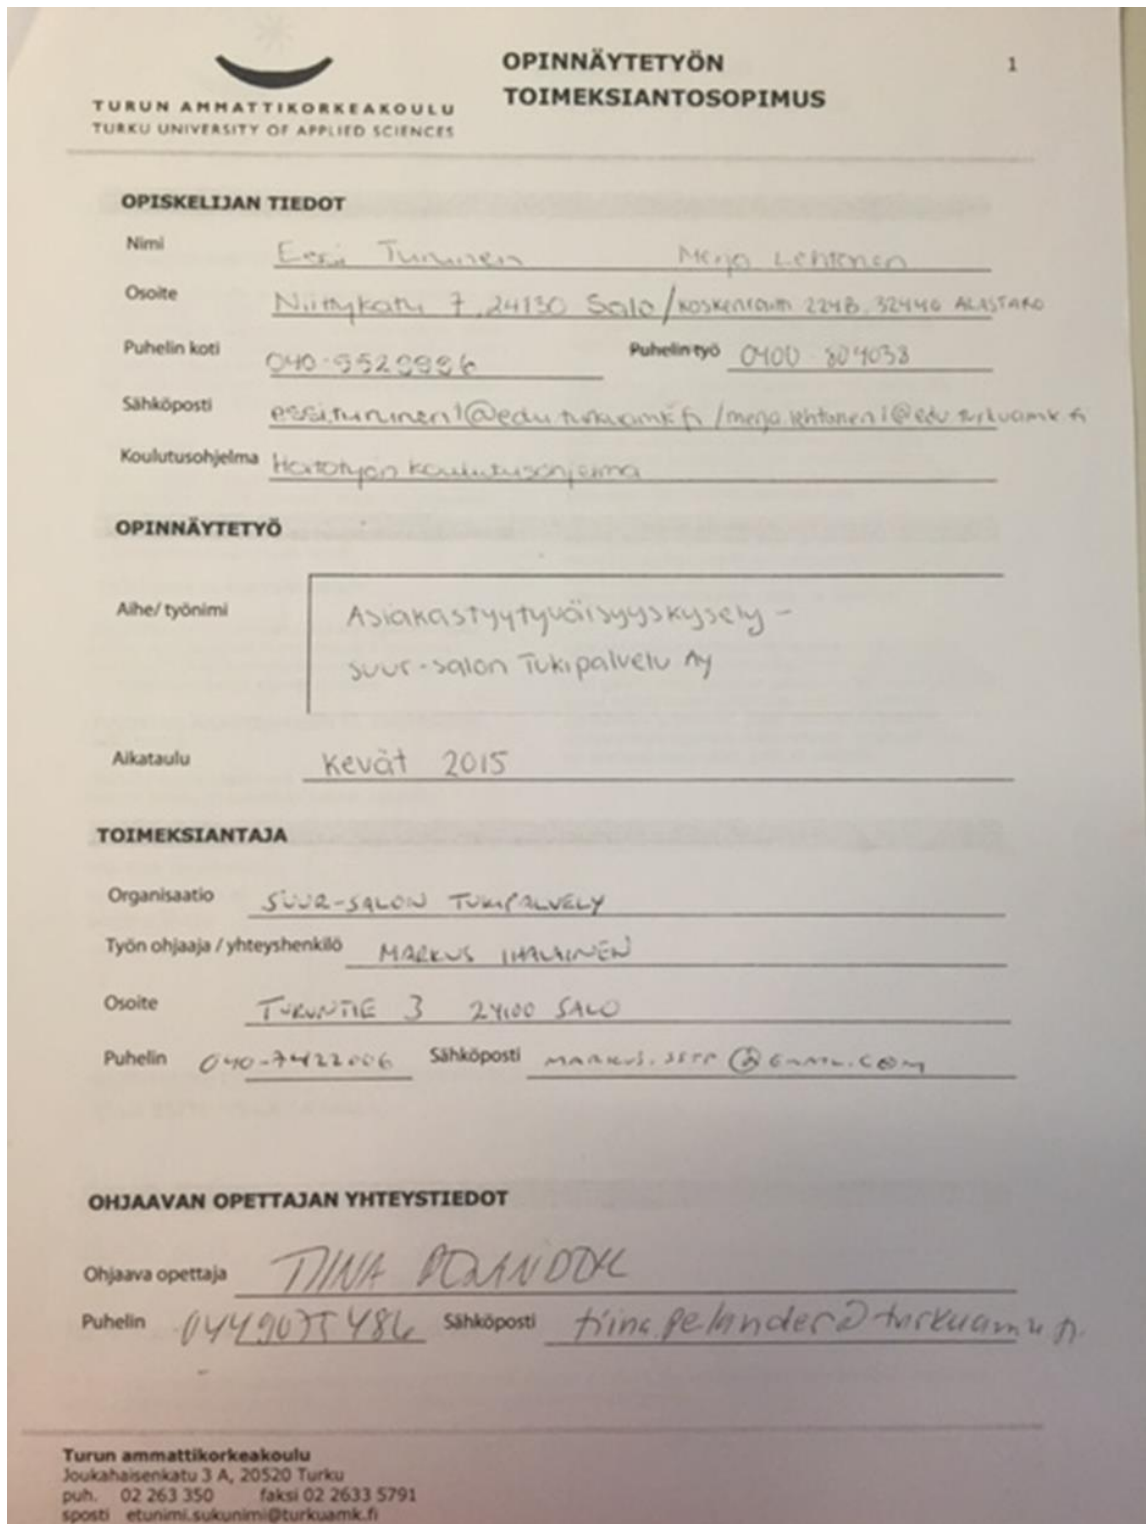 TURUN AMMATTIKORKEAKOULU
TURKU UNIVERSITY OF APPLIED SCIENCES
OPINNÄYTETYÖN
TOIMEKSIANTOSOPIMUS
1
OPISKELIJAN TIEDOT
Nimi Essi Tuminen Merja Lehtonen
Osoite Niittykatu 7, 24130 Salo / 224B, 32440 ALASTARO
Puhelin koti Puhelin työ 0400-804038
Sähköposti
Koulutusohjelma Hoitotyön koulutusohjelma
OPINNÄYTETYÖ
Aihe/ työnimi Asiakastyytyväisyyskysely -
Suur-Salon Tukipalvelu Ay
Aikataulu Kevät 2015
TOIMEKSIANTAJA
Organisaatio SUUR-SALON TUKIPALVELY
Työn ohjaaja / yhteyshenkilö MARKUS IHALAINEN
Osoite TURUNTIE 3 24100 SALO
Puhelin 040-7422006 Sähköposti MARKUS.SSTP@GMAIL.COM
OHJAAVAN OPETTAJAN YHTEYSTIEDOT
Ohjaava opettaja TIINA
Puhelin Sähköposti tiina.pelander@turkuamk.fi
Turun ammattikorkeakoulu
Joukahaisenkatu 3 A, 20520 Turku
puh. 02 263 350 faksi 02 2633 5791
sposti etunimi.sukunimi@turkuamk.fi